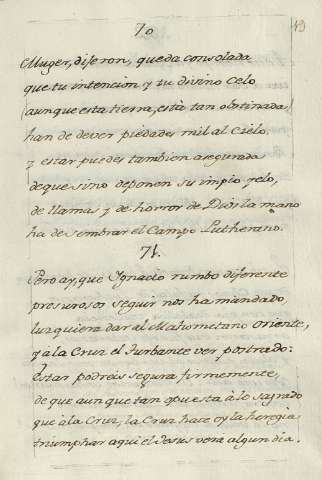 70
49
Muger, diseron, queda consolada
que tu intencion y tu divino Celo
aunque esta tierra, està tan obstinada
han de dever piedades mil al Cielo.
y estar puedes tambien asegurada
de que sino deponen su impio yelo,
de llamas y de horror de Dios la mano
ha de sembrar el Campo Lutherano.
71.
Pero ay, que Ignacio rumbo diferente
presurosos seguir nos ha mandado,
luz quiera dar al Mahometano oriente,
y à la Cruz el turbante ver postrado:
estar podreis segura firmemente,
de que aunque tan opuesta à lo sagrado
que à la Cruz, la Cruz hace oy la heregia
triumphar aqui el Jesus verà algun dia.